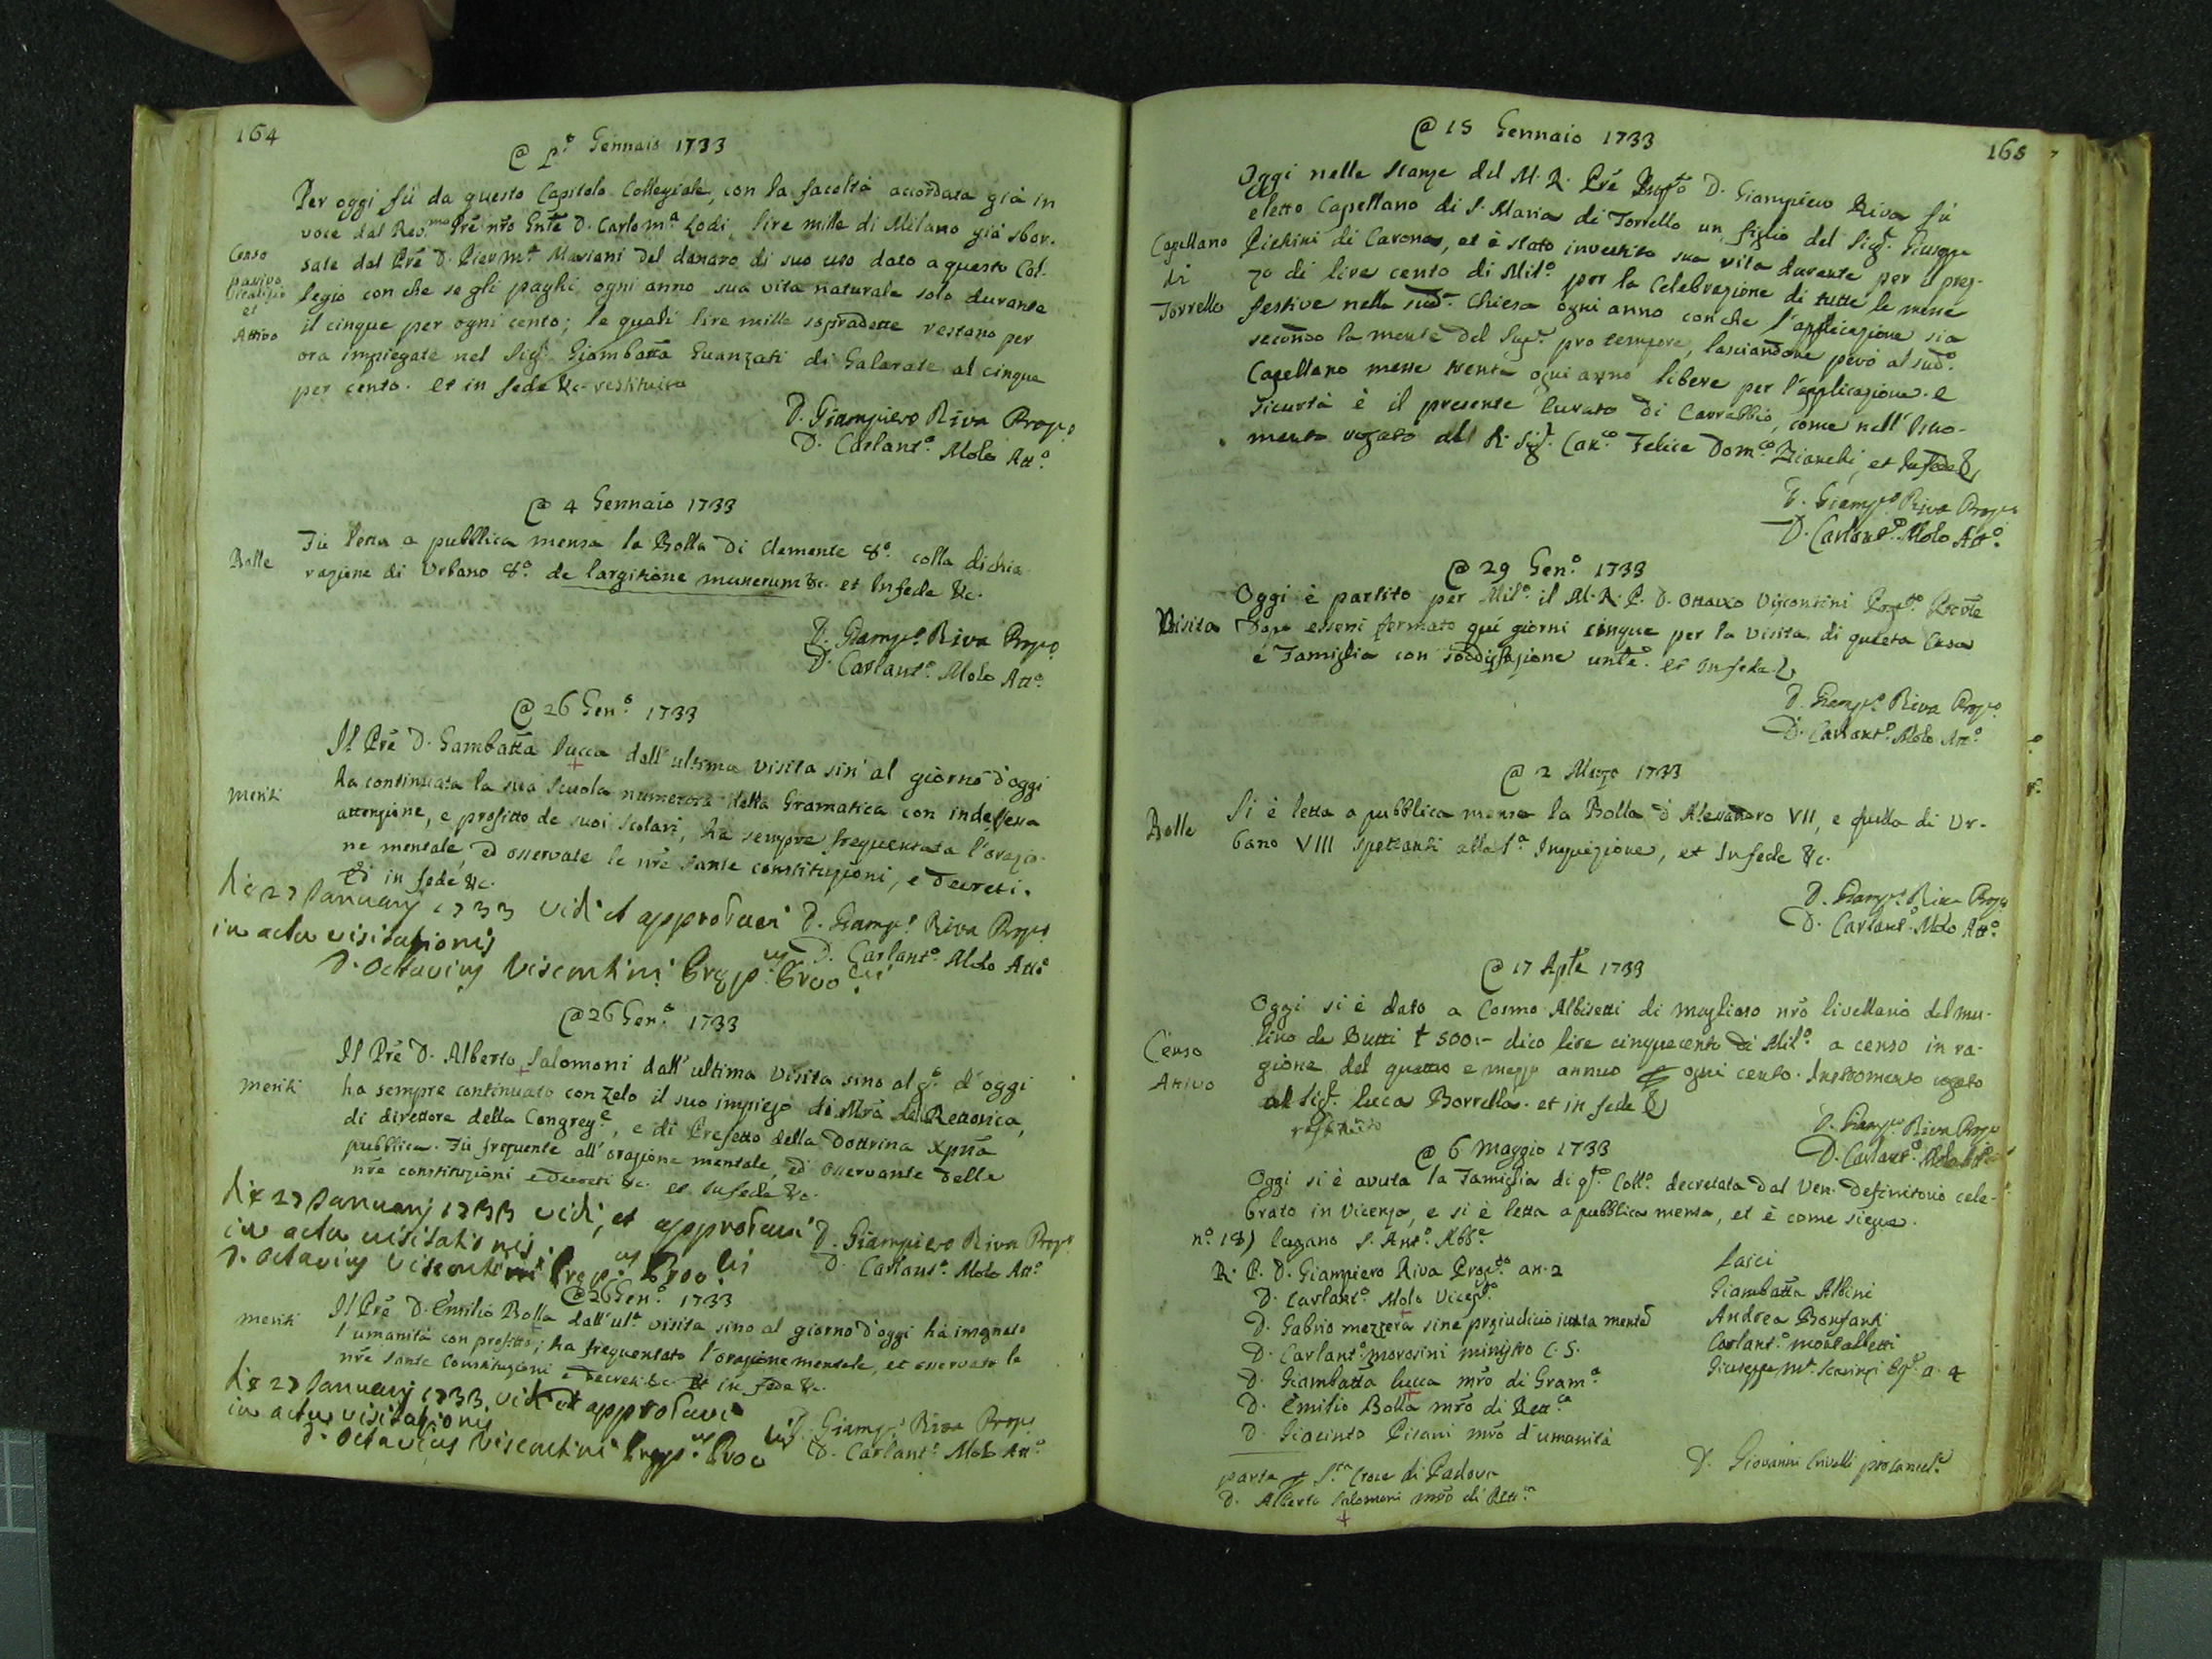 164
@ P.º Gennaio 1733
Per oggi fù da questo Capitolo Collegiale, con la facoltà accordata già in
voce dal Rev.mo Prē nrō Gnte D. Carlo m.a Lodi, lire mille di Milano già sbor-
sate dal Prē D. Pier m.a Mariani del danaro di suo uso dato a questo Col-
legio con che se gli paghi ogni anno sua vita naturale solo durante
il cinque per ogni cento; le quali lire mille sopradette restano per
ora impiegate nel Sig.r Giambatta Guanzati di Galarate al cinque
per cento. et in fede &c. restituito
Censo
passivo
Vitalizio
et
Attivo
D. Giampiero Riva Prop.o
D. Carlant.o Molo Att.o
@ 4 Gennaio 1733
Bolle
Fù letta a pubblica mensa la Bolla di Clemente 8.o colla dichia-
razione di Urbano 8.o de largitione munerum &c. et Infede &c.
D. Giamp.o Riva Prop.o
D. Carlant.o Molo Att.o
@ 26 Gen.o 1733
meriti
Il Prē D. Gambatta Lucca dall' ultima visita sin' al giorno d'oggi
ha continuata la sua scuola numerosa della Gramatica con indefessa
attenzione, e profitto de suoi scolari, ha sempre frequentata l'orazio-
ne mentale, ed osservate le nrē sante constituzioni, e decreti.
Et in fede &c.
die 27 Januarij 1733 vidi et approbavi
in actu visitationis
D. Octavius Vicentini Prep.us Prov.lis
D. Giamp.o Riva Prop.o
D. Carlant.o Molo Att.o
@ 26 Gen.o 1733
meriti
Il Prē D. Alberto Salomoni dall' ultima visita sino al g.o d' oggi
ha sempre continuato con zelo il suo impiego di Mrō di Rettorica,
di direttore della Congreg.e, e di Prefetto della Dottrina Xpnā
pubblica. Fù frequente all' orazione mentale, ed osservante delle
nrē constituzioni e decreti &c. et Infede &c.
die 27 Januarij 1733 vidi, et approbavi
in actu visitationis.
D. Octavius Vicentini Prep.us Prov.lis
D. Giampiero Riva Prop.o
D. Carlant.o Molo Att.o
@ 26 Gen.o 1733
meriti
Il Prē D. Emilio Bolla dall' ul.a visita sino al giorno d'oggi hà insegnato
l'umanità con profitto; ha frequentato l'orazione mentale, et osservato le
nrē sante Constituzioni e decreti &c. Et in fede &c.
die 27 Januarij 1733 vidi et approbavi
in actu visitationis
D. Octavius Vicentini Prep.us Prov.lis
D. Giamp.o Riva Prop.o
D. Carlant.o Molo Att.o
165
@ 15 Gennaio 1733
Capellano
di
Torrello
Oggi nelle stanze del M. R. Prē Prop.to D. Giampiero Riva fù
eletto Capellano di S. Maria di Torrello un figlio del Sig.r Giuseppe
Pichini di Carona, et è stato investito sua vita durante per il prez-
zo di lire cento di Mil.o per la Celebrazione di tutte le messe
festive nella sud.a Chiesa ogni anno con che l'applicazione sia
secondo la mente del Sup.r pro tempore, lasciandone però al sud.o
Capellano messe trenta ogni anno libere per l'applicazione. e
sicurtà è il presente Curato di Carrabbio, come nell' Istro-
mento rogato dal R. Sig.r Can.co Felice Dom.co Bianchi, et Infede &
D. Giamp.o Riva Prop.o
D. Carlant.o Molo Att.o
@ 29 Gen.o 1733
Visita
Oggi è partito per Mil.o il M. R. P. D. Ottavio Viscontini Prep.to Prov.le
dopo essersi fermato quì giorni cinque per la visita di questa Casa
e Famiglia con soddisfazione. et Infede &
D. Giamp.o Riva Prop.o
D. Carlant.o Molo Att.o
@ 2 Marzo 1733
Bolle
Si è letta a pubblica mensa la Bolla d' Alessandro VII, e quella di Ur-
bano VIII spettanti alla S.a Inquizione, et Infede &c.
D. Giamp.o Riva Prop.o
D. Carlant.o Molo Att.o
@ 17 Aple 1733
Censo
Attivo
Oggi si è dato a Cosmo Albisetti di Magliaso nrō livellario del mu-
lino de Butti ₶ 500:- dico lire cinquecento di Mil.o a censo in ra-
gione del quattro e mezzo annuo ogni cento. Instromento rogato
al Sig.r Luca Borrella. et in fede &
restituito
D. Giamp.o Riva Prop.o
D. Carlant.o Molo Att.o
@ 6 Maggio 1733
Oggi si è avuta la Famiglia di q.o Coll.o decretata dal Ven. Definitorio cele-
brato in Vicenza, e si è letta a pubblica mensa, et è come siegue.
n.o 18) Lugano S. Ant.o Abb.e
R. P. D. Giampiero Riva Prop.to an. 2
D. Carlant.o Molo Vicep.to
D. Gabrio mezzera sine prejudicio juxta mentē
D. Carlant.o morosini ministro C. S.
D. Giambatta Lucca mrō di Gram.a
D. Emilio Bolla mrō di Rett.ca
D. Giacinto Pisani mrō d'umanità
Laici
Giambatta Albini
Andrea Bonfanti
Carlant.o montalbetti
Giuseppe M.a a. 4
parte p S.ta Croce di Padova
D. Alberto Salomoni mrō di Rett.ca
D. Giovanni Crivelli procancel.e